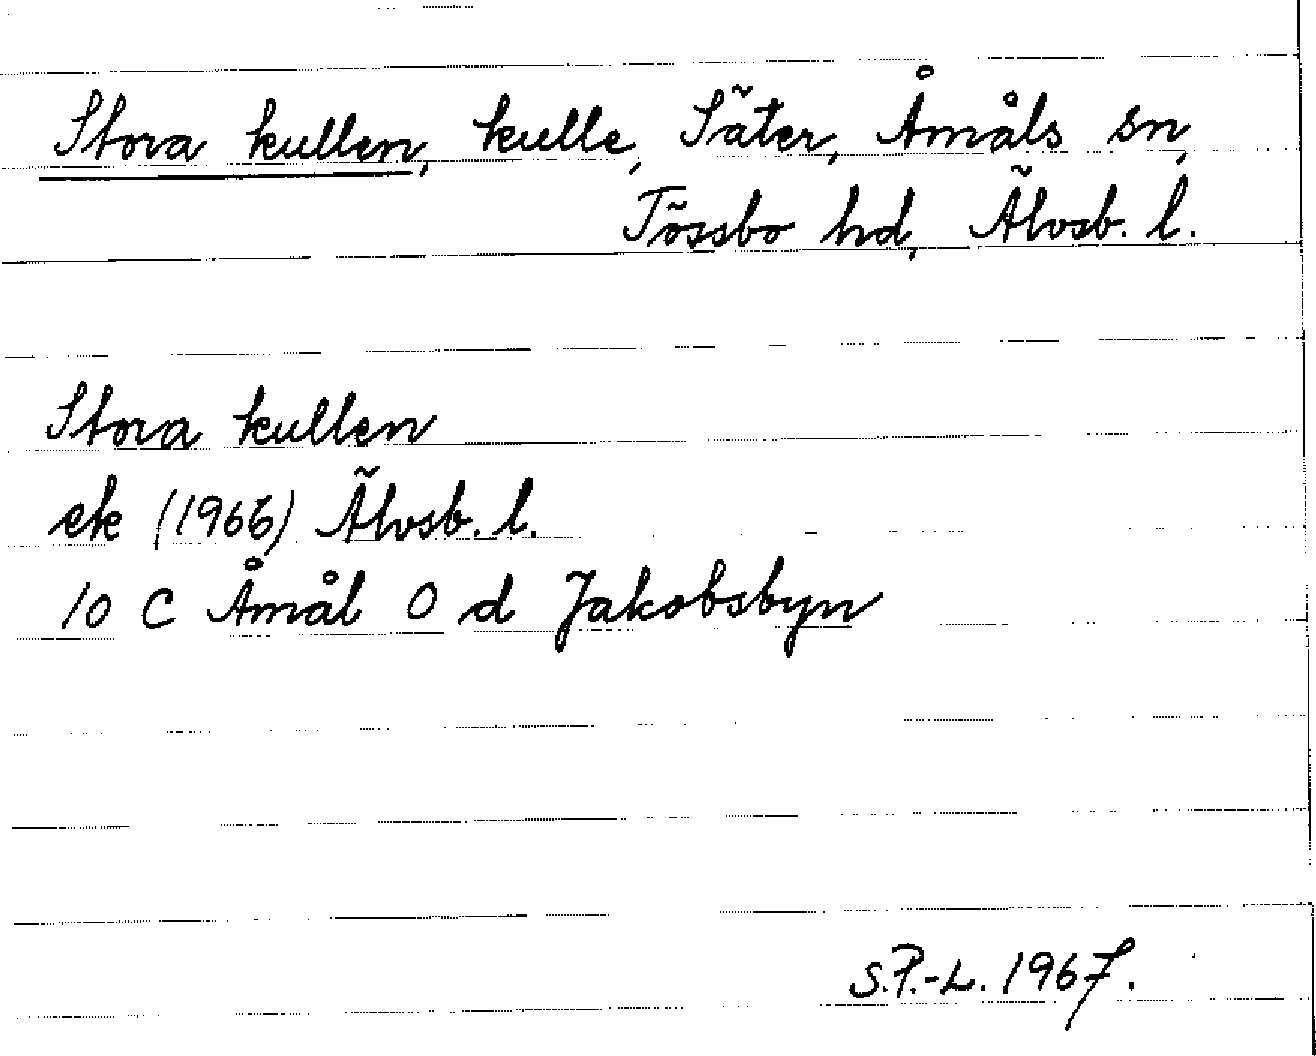 Stora kullen, kulle, Säter, Åmåls sn,
Tössbo hd, Älvsb. l.
Stora kullen
ek (1966) Älvsb. l.
10 C Åmål 0 d Jakobsbyn
S.P.-L. 1967.